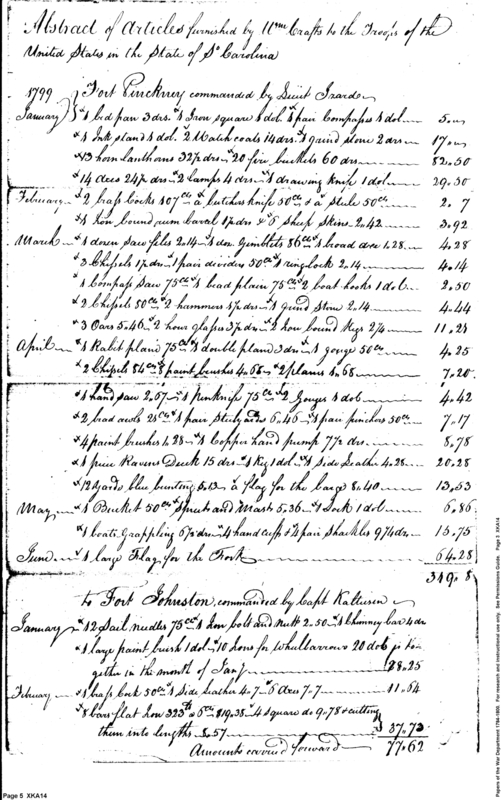 Abstract of Articles furnished by Wm Crafts to the Troops of the
United States in the State of So Carolina
1799 Fort Pinckney commanded by Lieut Izard
January 1 bed pan 3 drs. 1 Iron square 1 dol. 1 pair Compasses 1 dol 5
1 Ink stand 1 dol. 2 Match coats 14 drs. 1 grind stone 2 drs 17
13 horn lanthorns 32½ drs. 20 fire buckets 60 drs 82.50
14 axes 24½ drs. 2 Lamps 4 drs. 1 drawing knife 1 dol 29.50
February 2 brass Cocks 107 a butchers knife 50 cts & a steele 50 cts 2. 7
1 Iron bound rum barrel 1½ drs & 6 Sheep Skins 2.42 3.92
March 1 dozen saw files 2.14 1 doz. Gimblets 86 cts 1 broad axe 1.28 4.28
3 Chissels 1½ drs 1 pair dividers 50 cts 1 ring lock 2.14 4.14
1 Compass Saw 75 cts 1 bead plain 75 cts 2 boat hooks 1 dol 2.50
2 Chissels 50 cts 2 hammers 1½ drs 1 grind stone 2.14 4.44
3 Oars 5.46 2 hour glasses 3½ drs 2 Iron bound Kegs 2¼ 11.21
April 1 Rabit plane 75 cts 1 double plane 3 drs 1 gouge 50 cts 4.25
2 Chissels 84 cts 8 paint brushes 4.68 2 planes 1.68 7.20
1 hand saw 2.67 1 Penknife 75 cts 2 Gouges 1 dol 4.42
2 brad awls 21 cts 1 pair Steelyards 6.46 1 pair pinchers 50 cts 7.17
4 paint brushes 1.28 1 Copper hand pump 7½ drs 8.78
1 piece Ravens Duck 15 drs 1 Keg 1 dol 1 Side Leather 4.28 20.28
12 yards blue bunting 5.13 a flag for the barge 8.40 13.53
May 1 Bucket 50 cts Spreet and Mast 5.36 1 Lock 1 dol 6.86
1 boats Grappling 6½ drs 4 hand cuffs & 4 pair Shackles 9¼ drs 15.75
June 1 large Flag for the Fort 64.28
349. 8
to Fort Johnston, commanded by Capt Kalteisen
January 12 Sail needles 75 cts 1 Iron bolt and Nutt 2.50 1 Chimney bar 4 drs
1 large paint brush 1 dol 10 Irons for Whulbarrows 20 dols is to=
gether in the month of Jany 28.25
February 1 brass Cock 50 cts 1 Side Leather 4.7 6 Axes 7.7 11.64
8 bars flat Iron 323 lb a 6 cts $19.38 4 square do 9.78 & cutting
them into lengths 8.57 $37.73
Amounts carried forward 77.62
Page 5 XKA14
Papers of the War Department 1784-1800. For research and instructional use only. See Permissions Guide. Page 5 XKA14